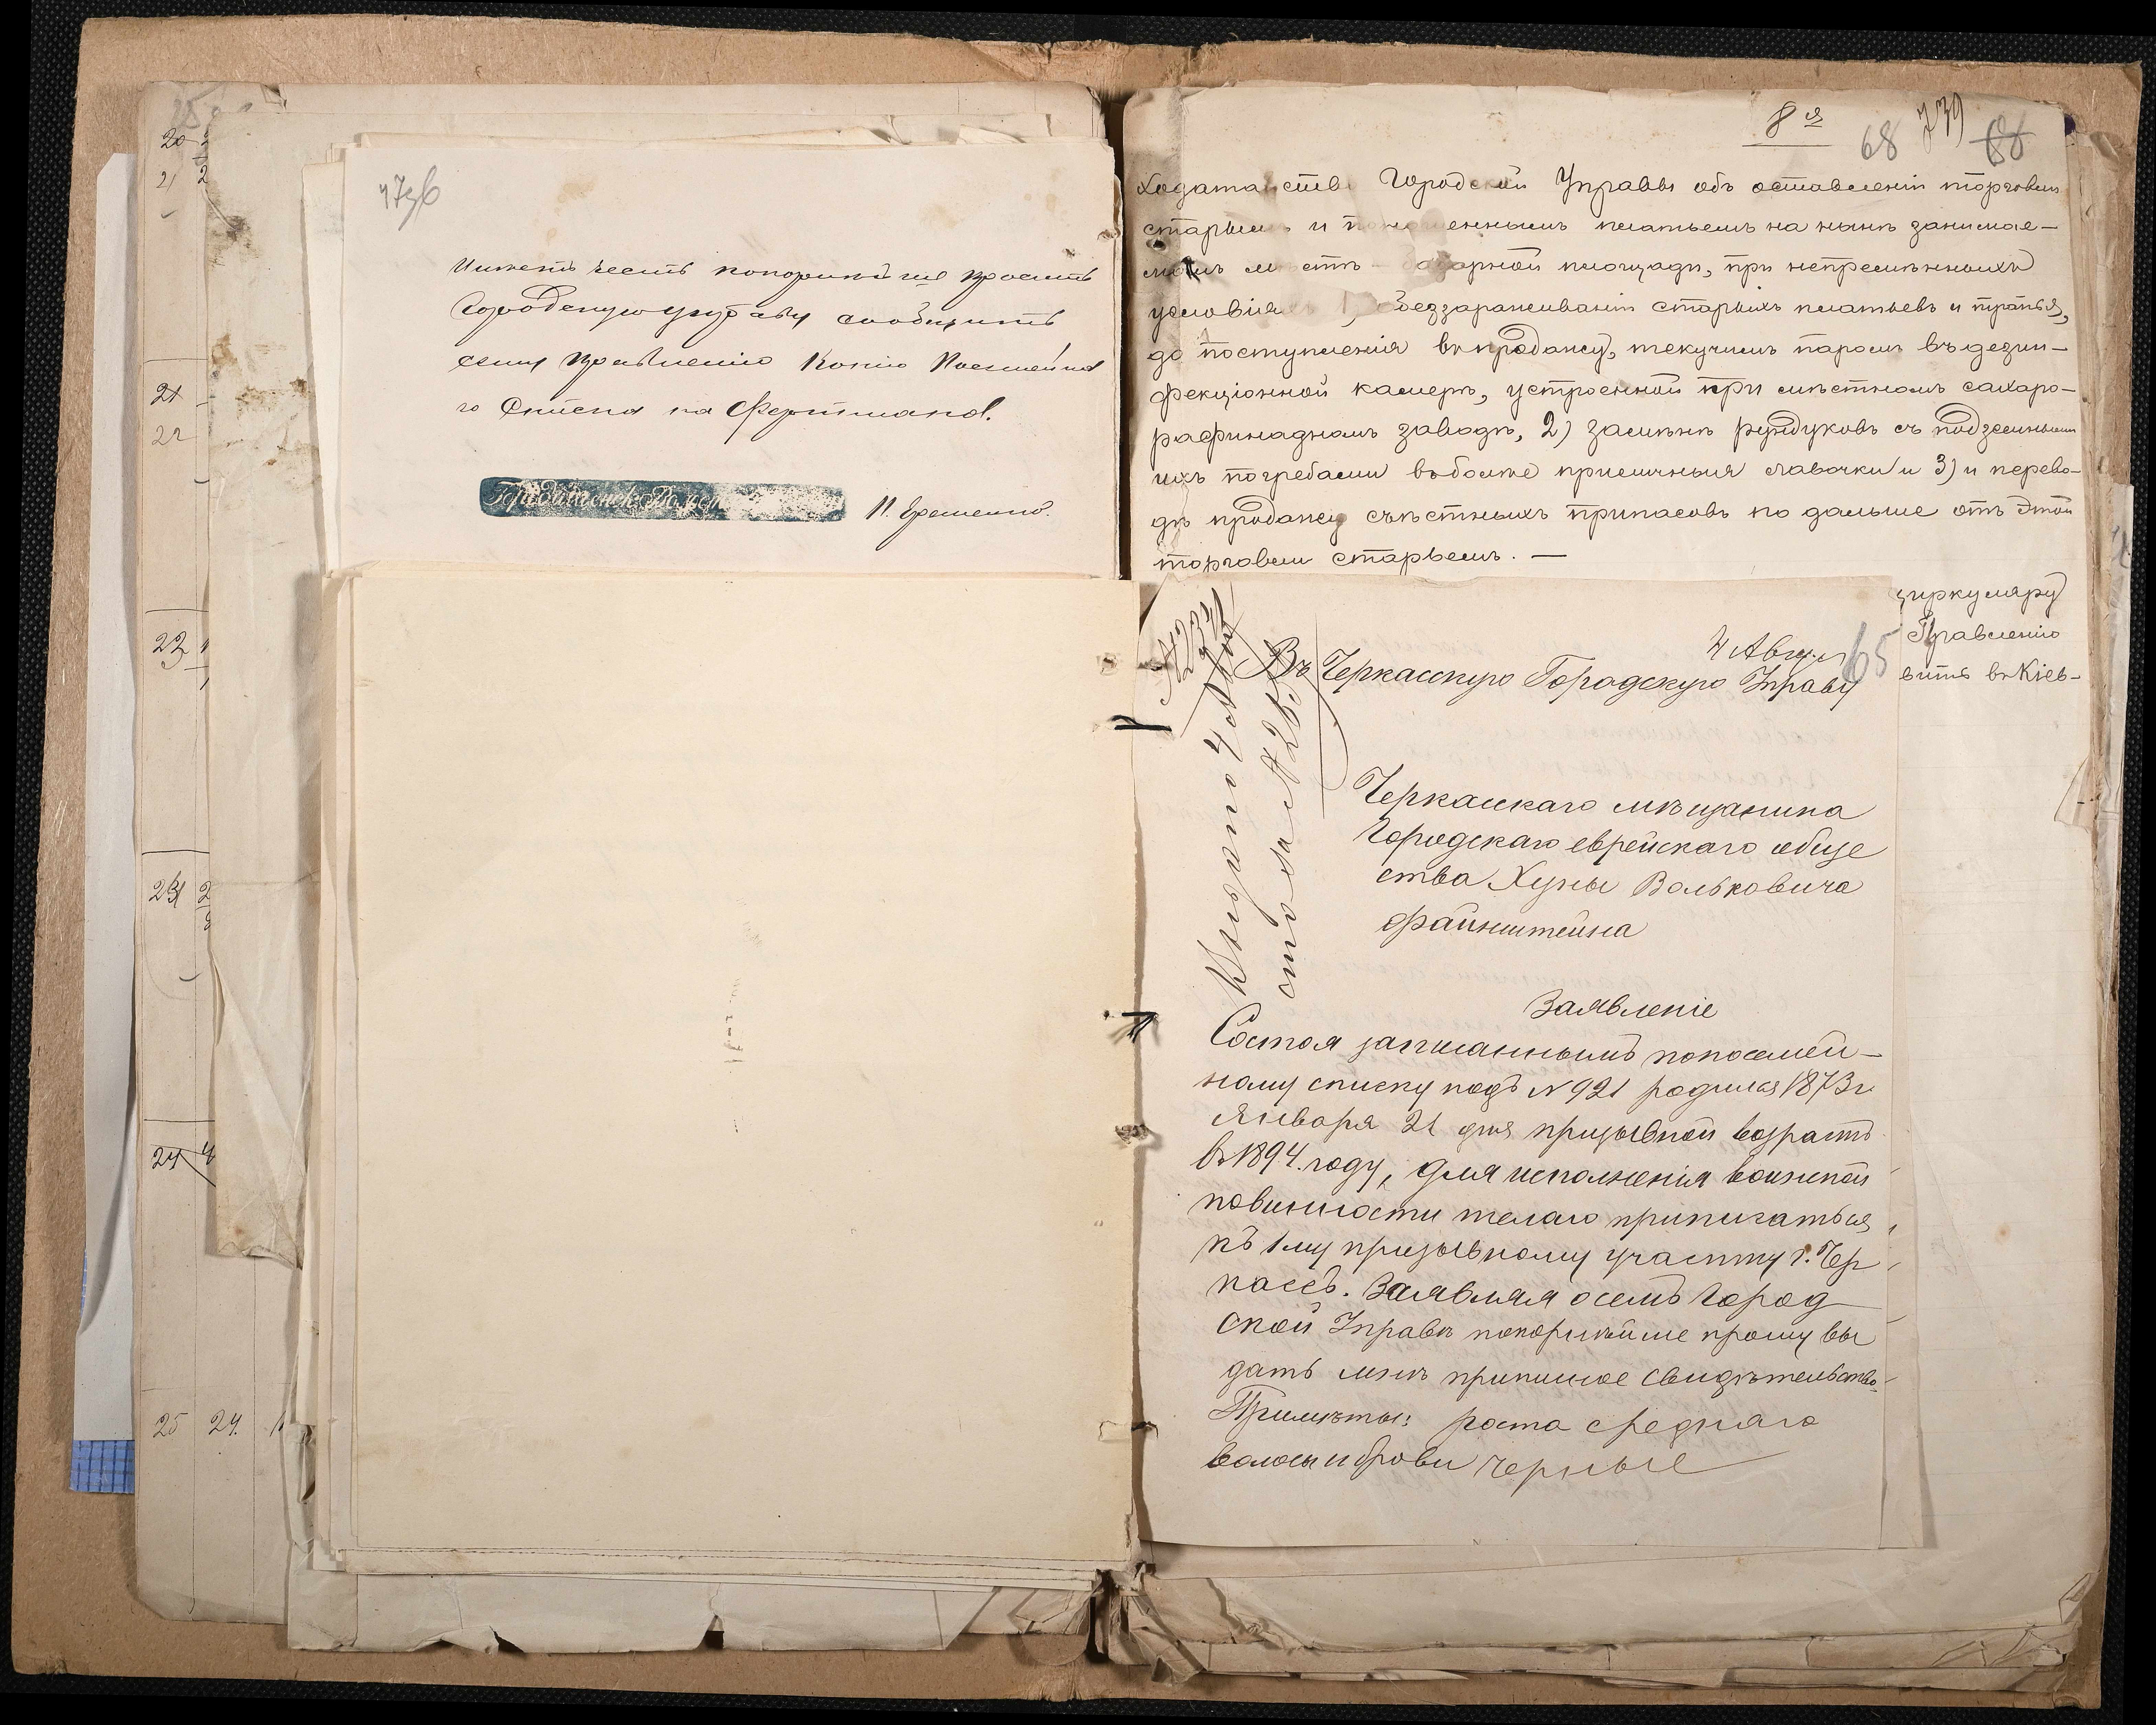 20
21
21
22
23
24
25 24.
473б
Имѣетъ честь покорнѣйше просить
Городскую управу сообщить
сему правленію копію Посемейна
го Списка на Фертмана.
П. Еременко.
8я
68 739 68
Ходатайство Городской Управы объ оставленіи торговли
старьемъ и поношеннымъ платьемъ на нынѣ занимае-
момъ мѣстѣ базарной площади, при непремѣнныхъ
условіяхъ 1, обеззараживаніи старыхъ платьевъ и тряпья,
до поступленія въ продажу, текучимъ паромъ въ дезин-
фекціонной камерѣ, устроенной при мѣстномъ сахаро-
рафинадномъ заводѣ, 2) замѣнѣ рундуковъ съ подземными
ихъ погребами въ болѣе приличныя лавочки и 3) и перево-
дѣ продажу съѣстныхъ припасовъ по дальше отъ этой
торговли старьемъ. —
циркуляру
Правленію
вить въ Кіев-
4 Август 65
Въ Черкасскую Городскую Управу
Черкасскаго мѣщанина
Городскаго еврейскаго обще
ства Хуны Вольковича
Файнштейна
Заявленіе
Состоя записаннымъ по посемей-
ному списку подъ № 921 родился 1873 г.
Января 21 дня призывной возрастъ
въ 1894. году, для исполненія воинской
повинности желаю приписаться
къ 1му призывному участку г. Чер
кассъ. Заявляя о семъ Город
ской Управѣ покорнѣйше прошу вы
дать мнѣ приписное свидѣтельство.
Примѣты: роста средняго
волосы и брови черные